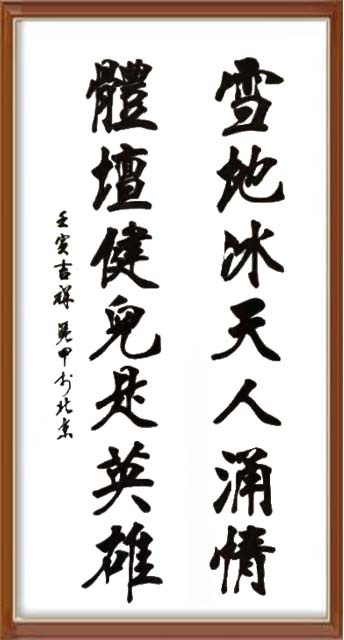 雪地冰天人涌情
體壇健兒是英雄
壬寅吉祥 甲於北京